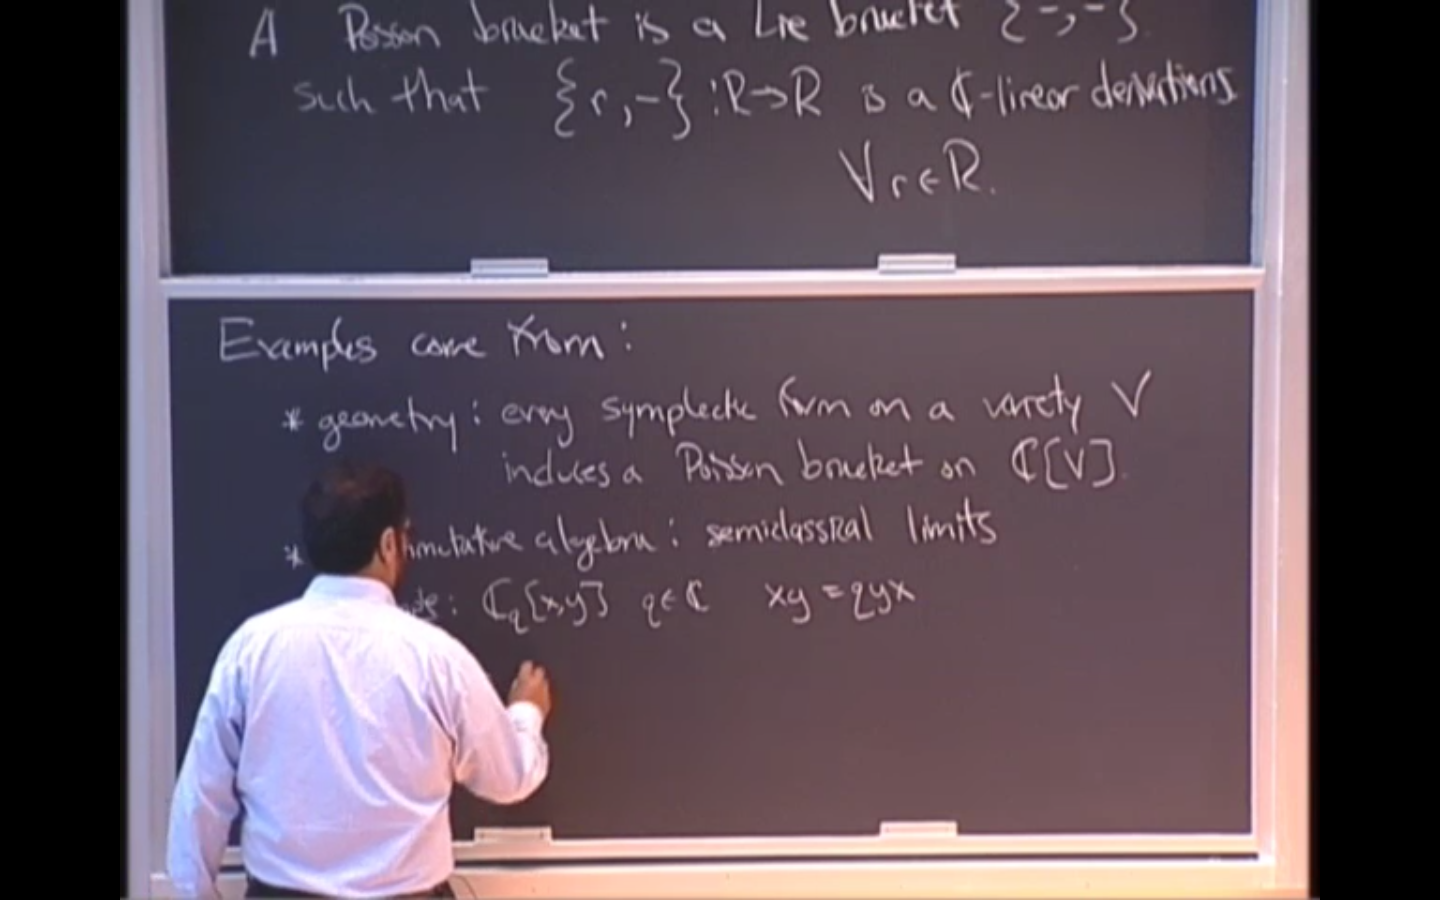 A Poisson bracket is a Lie bracket {-,-}
such that {r,-}:R→R is a ℂ-linear derivations
∀r∈R.
Examples come from:
* geometry: every symplectic form on a variety V
induces a Poisson bracket on ℂ[V].
* mmutative algebra: semiclassical limits
ℂ_q[x,y] q∈ℂ xy=qyx